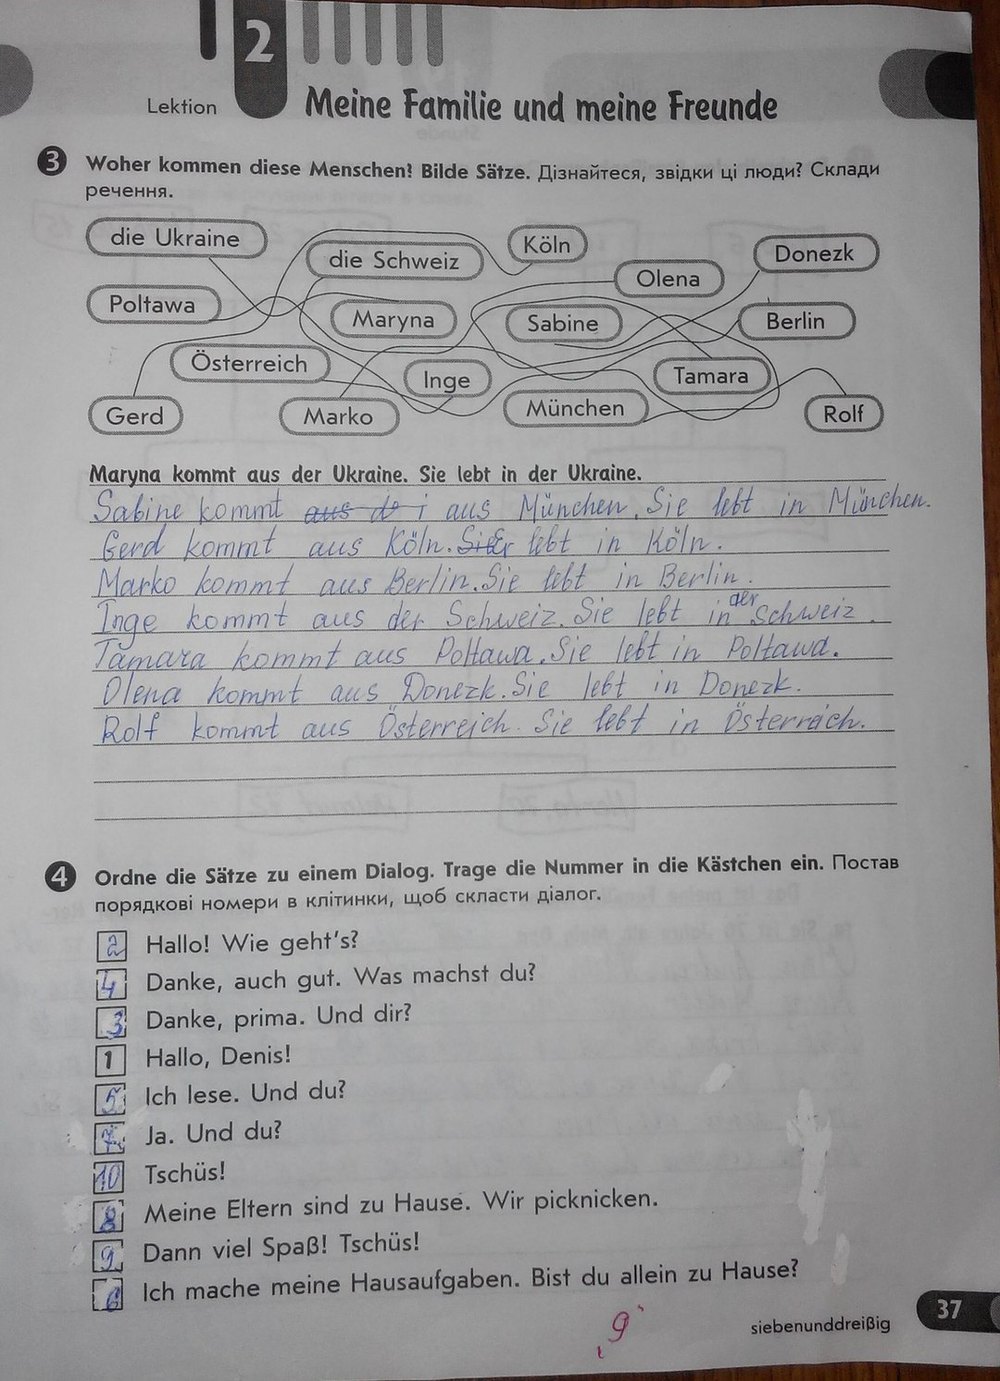 2
Lektion
Meine Familie und meine Freunde
3 Woher kommen diese Menschen? Bilde Sätze. Дізнайтеся, звідки ці люди? Склади
речення.
die Ukraine
die Schweiz
Köln
Olena
Donezk
Poltawa
Maryna
Sabine
Berlin
Österreich
Inge
Tamara
Gerd
Marko
München
Rolf
Maryna kommt aus der Ukraine. Sie lebt in der Ukraine.
Sabine kommt aus de i aus München. Sie lebt in München.
Gerd kommt aus Köln. Sie Er lebt in Köln.
Marko kommt aus Berlin. Sie lebt in Berlin.
Inge kommt aus der Schweiz. Sie lebt in der Schweiz.
Tamara kommt aus Poltawa. Sie lebt in Poltawa.
Olena kommt aus Donezk. Sie lebt in Donezk.
Rolf kommt aus Österreich. Sie lebt in Österreich.
4 Ordne die Sätze zu einem Dialog. Trage die Nummer in die Kästchen ein. Постав
порядкові номери в клітинки, щоб скласти діалог.
2 Hallo! Wie geht's?
4 Danke, auch gut. Was machst du?
3 Danke, prima. Und dir?
1 Hallo, Denis!
5 Ich lese. Und du?
7 Ja. Und du?
10 Tschüs!
8 Meine Eltern sind zu Hause. Wir picknicken.
9 Dann viel Spaß! Tschüs!
6 Ich mache meine Hausaufgaben. Bist du allein zu Hause?
9
siebenunddreißig
37